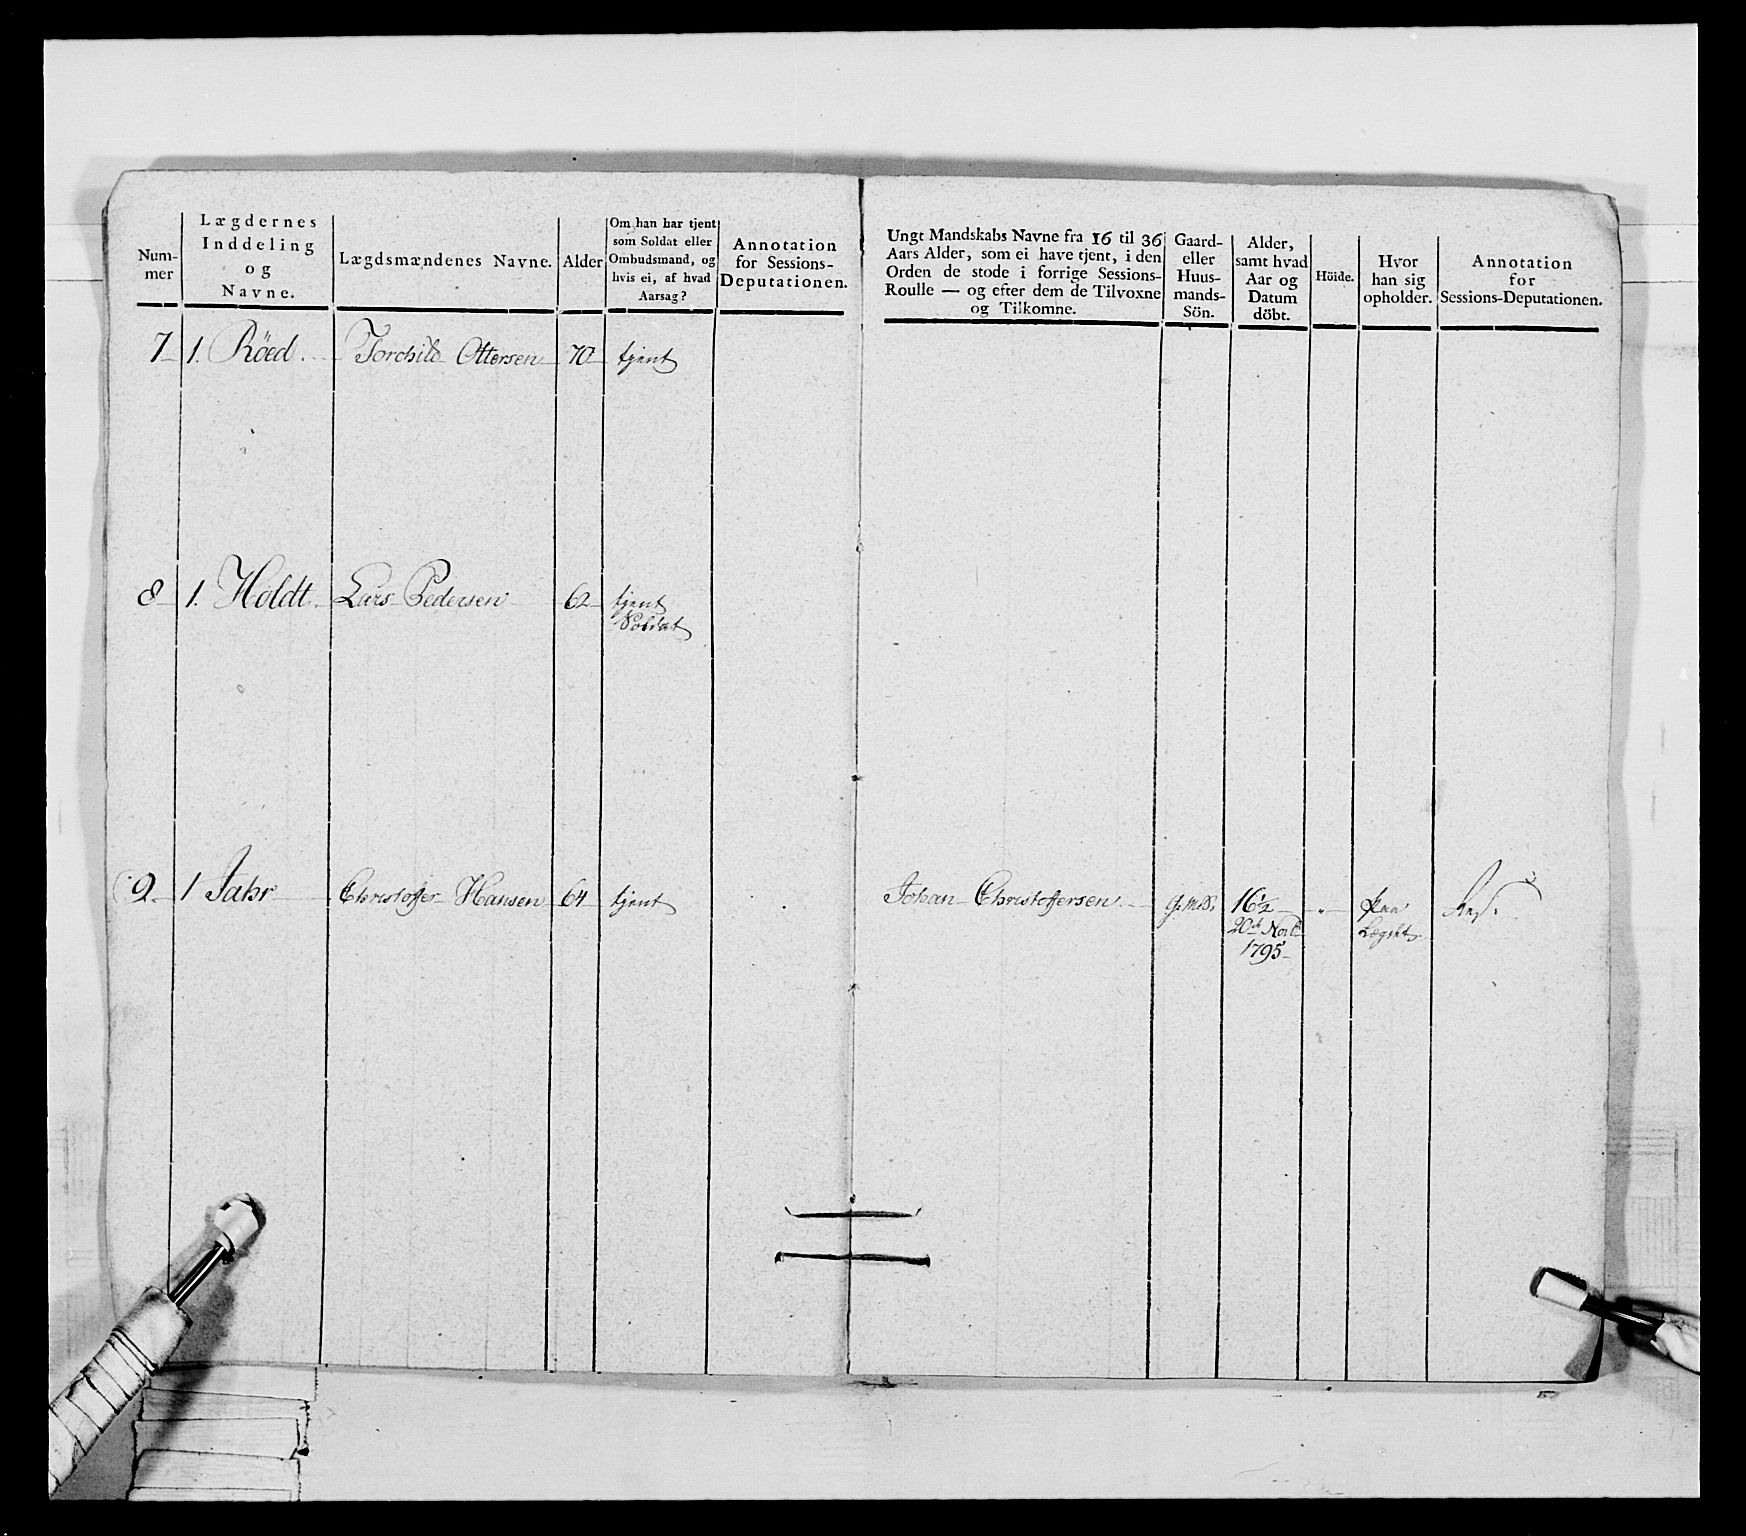 Num-
mer
Lægdernes
Inddeling
og
Navne.
Lægdsmændenes Navne.
Alder
Om han har tjent
som Soldat eller
Ombudsmand, og
hvis ei, af hvad
Aarsag?
Annotation
for Sessions-
Deputationen.
Ungt Mandskabs Navne fra 16 til 36
Aars Alder, som ei have tjent, i den
Orden de stode i forrige Sessions-
Roulle — og efter dem de Tilvoxne
og Tilkomne.
Gaard-
eller
Huus-
mands-
Sön.
Alder,
samt hvad
Aar og
Datum
döbt.
Höide.
Hvor
han sig
opholder.
Annotation
for
Sessions-Deputationen.
7 1. Röed. Torchild Ottersen 70 tjent
8 1. Holdt. Lars Pedersen 62 tjent
Soldat
9. 1 Jahr Christoffer Hansen 64 tjent Johan Christoffersen G.m.S. 16 1/2 paa
Lægdet
1795